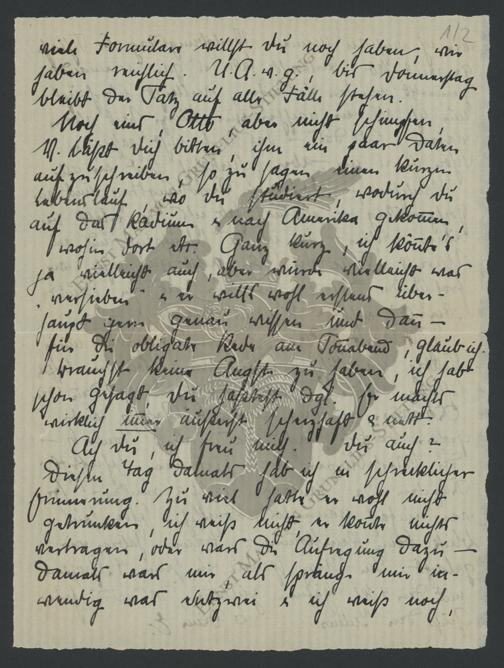 1/2
viele Formulare willst du noch haben, wir
haben reichlich. U.A.w.g., bis Donnerstag
bleibt der Satz auf alle Fälle stehen.
Noch eins, Otto, aber nicht schimpfen,
V. läßt dich bitten, ihm ein paar Daten
aufzuschreiben, so zu sagen einen kurzen
Lebenslauf, wo du studiert, wodurch du
auf das Radium & nach Amerika gekommen,
wohin dort etc. Ganz kurz, ich könnte's
ja vielleicht auch, aber würde vielleicht was
"versieben" & er will's wohl erstens über-
haupt gern genau wissen und dann –
für die obligate Rede am Polterabend, glaub ich.
Brauchst keine Angst zu haben, ich hab
schon gesagt, du hassest dgl. Er macht's
wirklich immer äußerst scherzhaft & nett.
Ach du, ich freu mich. Du auch?
Diesen Tag damals hab ich in schrecklicher
Erinnerung. Zu viel hatte er wohl nicht
getrunken, ich weiß nicht er konnte nichts
vertragen, oder wars die Aufregung dazu –
damals wars mir, als spränge mir in-
wendig was entzwei & ich weiß noch,